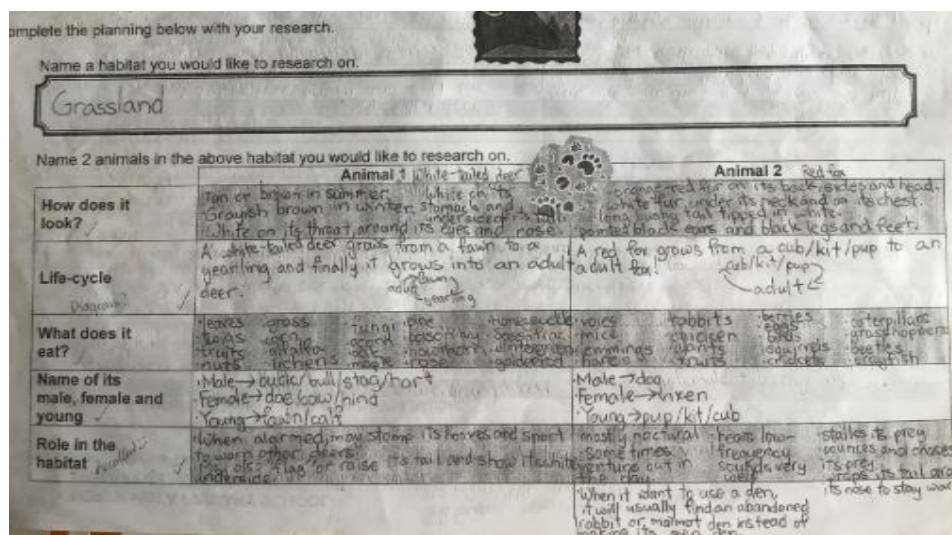 omplete the planning below with your research.
Name a habitat you would like to research on.
Grassland
Name 2 animals in the above habitat you would like to research on.
Animal 1 White-tailed deer
Animal 2 Red fox
How does it look?
Tan or brown in summer.
Grayish brown in winter.
White on its throat, around its eyes and nose.
White on its
stomach and
underside of its
orange-red fur on its back, sides and head.
white fur under its neck and on its chest.
long bushy tail tipped in white.
pointed black ears and black legs and feet.
Life-cycle
Diagram?
A white-tailed deer grows from a fawn to a
yearling and finally it grows into an adult
deer.
fawn
adult
yearling
A red fox grows from a cub/kit/pup to an
adult fox!
cub/kit/pup
adult
What does it eat?
leaves
fruits
nuts
grass
corn
alfalfa
lichens
fungi
acorn
pine
poison ivy
hawthorn
rose
honeysuckle
voles
mice
lemmings
rabbits
chicken
fruits
berries
eggs
birds
squirrels
crickets
caterpillars
grasshopper
beetles
crayfish
Name of its male, female and young
Male → buck/bull/stag/hart
Female → doe/cow/hind
Young → fawn/calf
Male → dog
Female → vixen
Young → pup/kit/cub
Role in the habitat
When alarmed, may stomp its hooves and snort
to warn other deers.
May also flag or raise its tail and show its white
underside.
mostly noctural
sometimes
venture out in
the day.
hears low-
frequency
sounds very
well
stalks its prey
pounces and
its prey
its tail
its nose to stay
When it want to use a den,
it will usually find an abandoned
rabbit or marmot den instead of
making its own den.